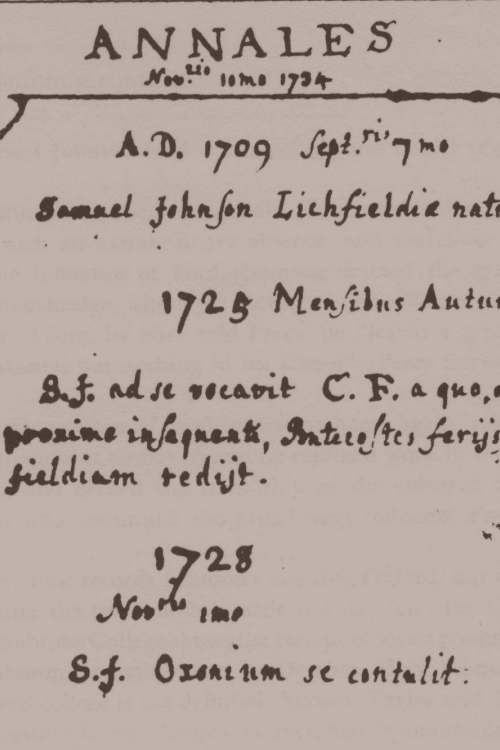 ANNALES
Nov.brio 10mo 1734
A.D. 1709 Sept.ris 7mo
Samuel Johnſon Lichfieldiæ natu
1725 Menſibus Autu
S.J. ad se vocavit C. F. a quo,
proxime inſequentis, Pentecoſtes ferijs
fieldiam redijt.
1728
Novris 1mo
S.J. Oxonium se contulit.